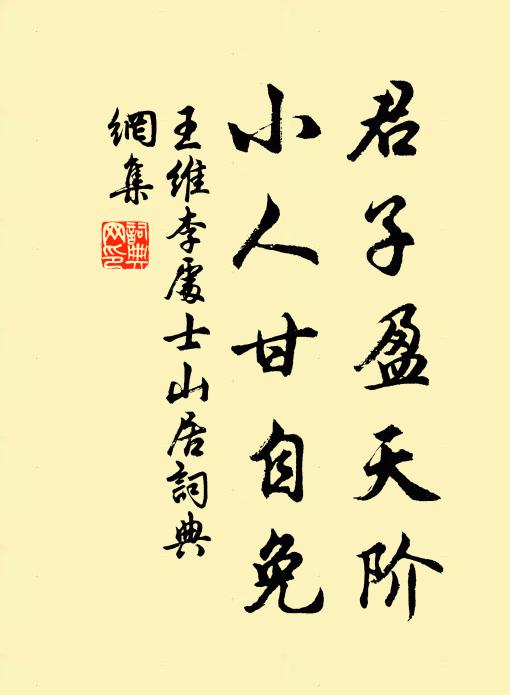 君子盈天阶
小人甘自免
王维李處士山居詞典
網集
詞典
网印